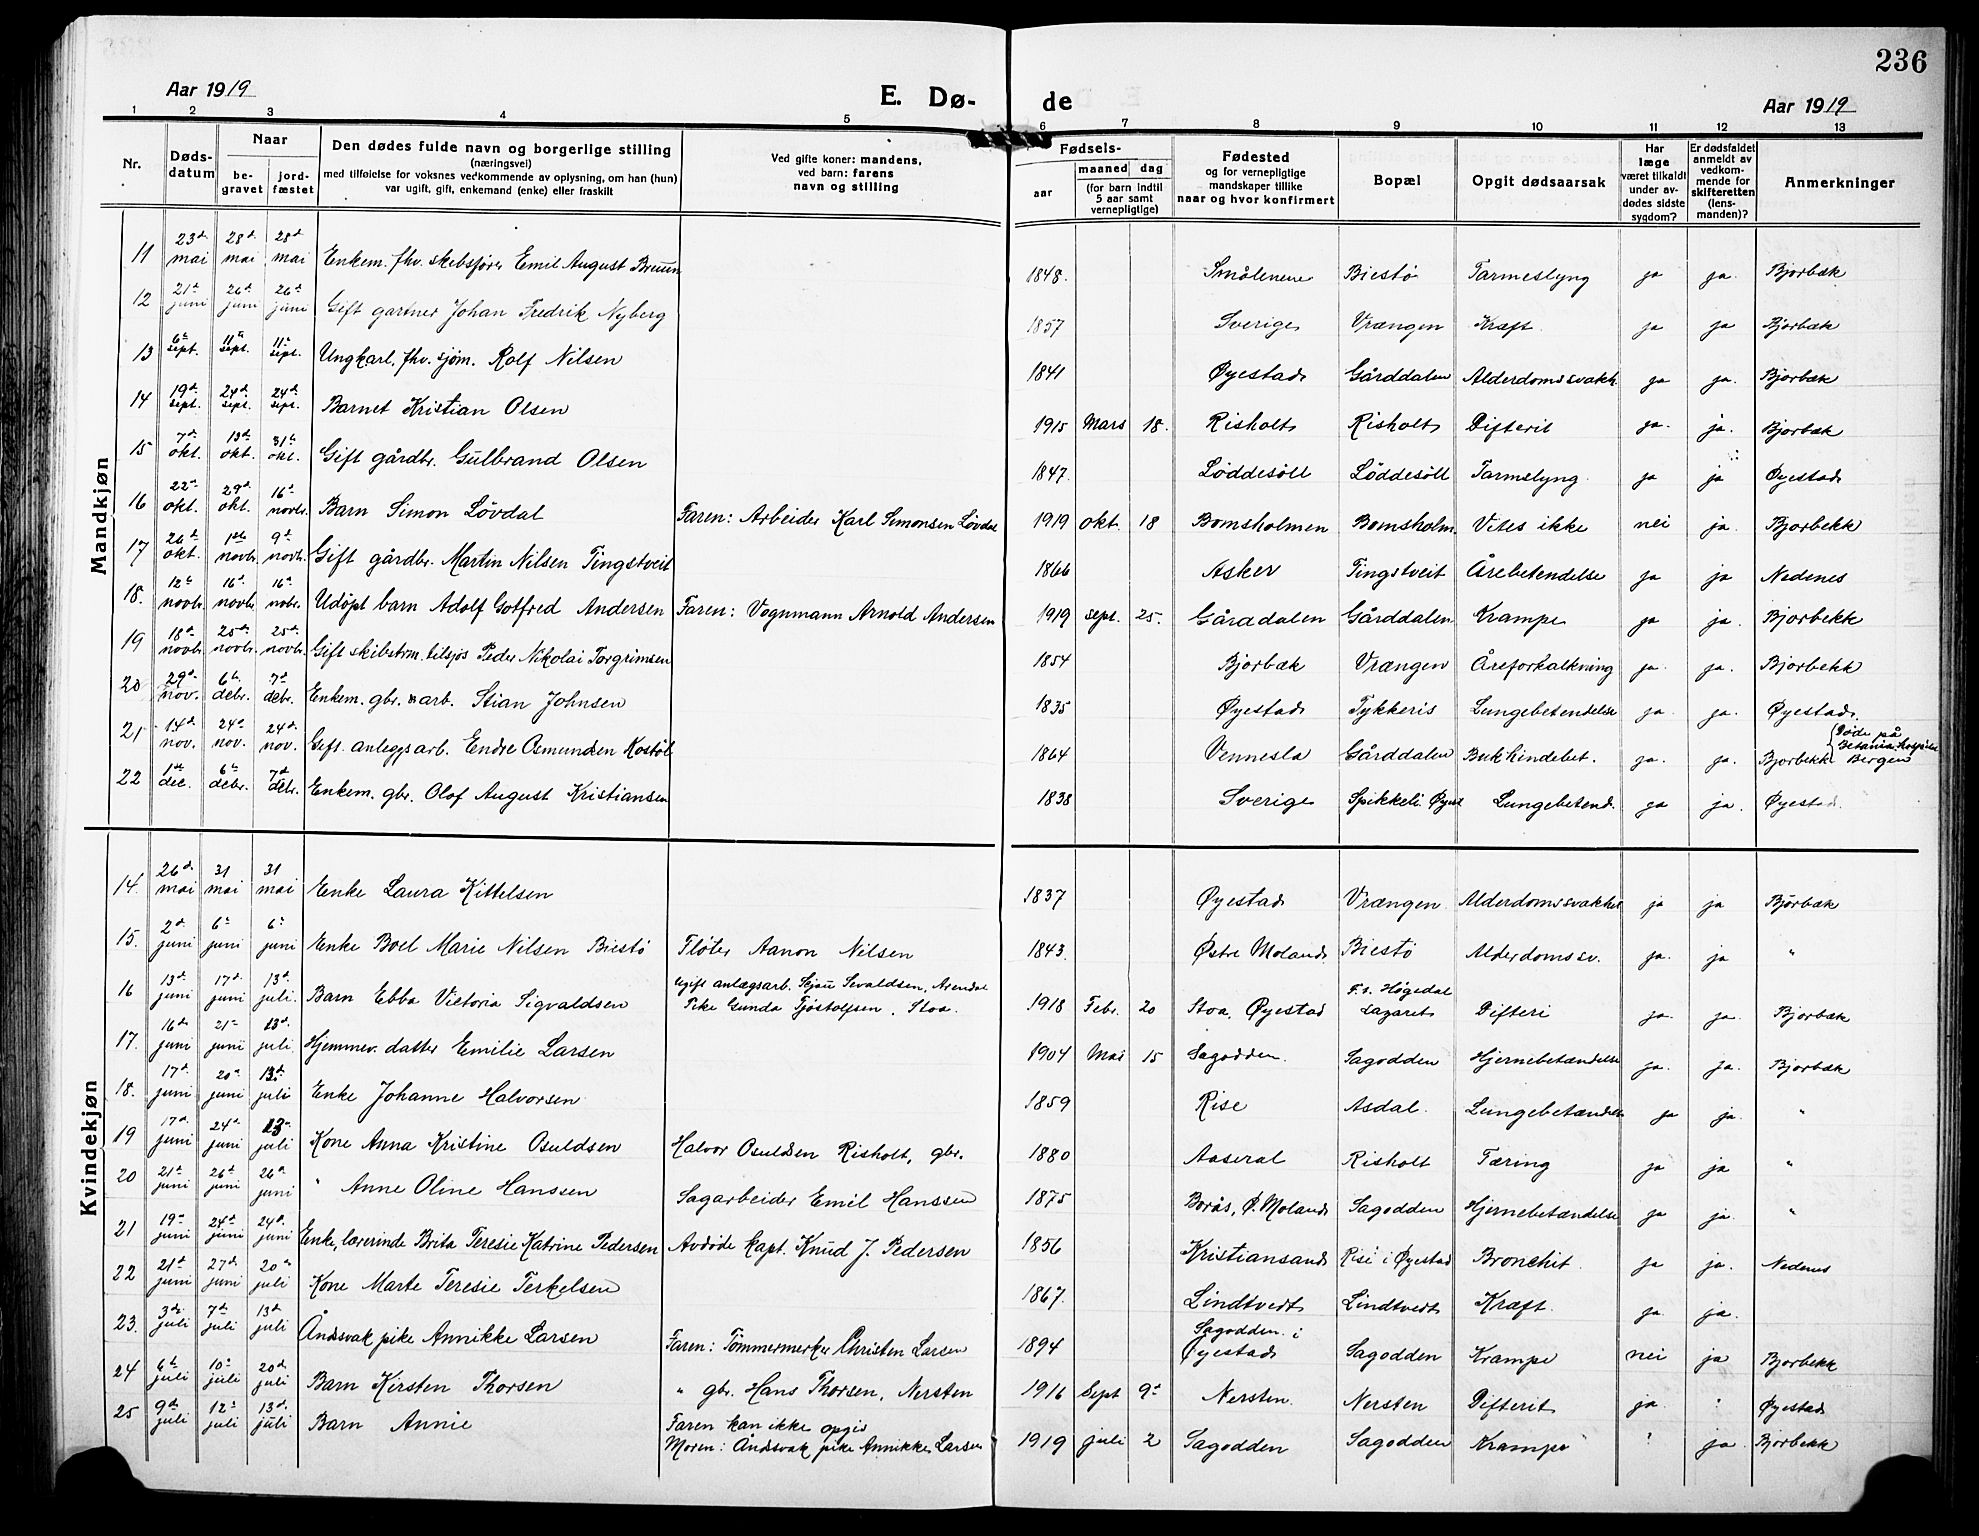 236
Aar 1919
E. Dø- de
Aar 1919
1 2 3 4 5 6 7 8 9 10 11 12 13
Nr.
Døds-
datum
Naar
be-
gravet
jord-
fæstet
Den dødes fulde navn og borgerlige stilling
(næringsvei)
med tilføielse for voksnes vedkommende av oplysning, om han (hun)
var ugift, gift, enkemand (enke) eller fraskilt
Ved gifte koner: mandens,
ved barn: farens
navn og stilling
Fødsels-
aar
maaned dag
(for barn indtil
5 aar samt
vernepligtige)
Fødested
og for vernepligtige
mandskaper tillike
naar og hvor konfirmert
Bopæl
Opgit dødsaarsak
Har
læge
været tilkaldt
under av-
dødes sidste
sygdom?
Er dødsfaldet
anmeldt av
vedkom-
mende for
skifteretten
(lens-
manden)?
Anmerkninger
Mandkjøn
11 23d mai 28d mai 28d mai Enkem. fhv. skibsfører Emil August Bruun 1848. Smålenene Biestø Tarmeslyng ja ja. Bjorbæk
12 21d juni 26d juni 26d juni Gift gartner Johan Fredrik Nyberg 1857 Sverige Vrængen Kræft ja ja Bjorbæk
13 6te sept. 11te sept. 11te sept. Ungkarl. fhv. sjøm. Rolf Nilsen 1841 Øyestad Gårddalen Alderdomssvakh. ja ja. Bjorbæk
14 19d sept. 24d sept. 24d sept. Barnet Kristian Olsen 1915 Mars 18. Risholt Risholt Difterit ja. ja. Bjorbæk
15 7d okt. 13d okt. 31te okt. Gift gårdbr. Gulbrand Olsen 1847. Løddesöll Løddesöll Tarmslyng. ja ja Øyestad
16 22d okt. 29d okt. 16d novbr. Barn Simon Lövdal Faren: Arbeider Karl Simonsen Lövdal 1919 okt. 18 Bomsholmen Bomsholm. Vites ikke nei ja. Bjorbekk
17 26d okt. 1ste novbr. 9d novbr. Gift gårdbr. Martin Nilsen Tingstveit 1866 Asker Tingstveit Årebetendelse ja ja Nedenes
18. 12te novbr. 16d novbr. 16d nobr. Udøpt barn Adolf Gotfred Andersen Faren: Vognmann Arnold Andersen 1919 sept. 25. Gårddalen Gårddalen Krampe ja ja. Bjorbekk
19 18d novbr. 25d novbr. 25d novbr. Gift skibstrm. tilsjøs Peder Nikolai Torgrimsen 1854 Bjorbæk Vrængen Åreforkalkning ja. ja. Bjorbekk
20 29d nov. 6te debr. 7d debr. Enkem. gbr. & arb. Stian Johnsen 1835 Øyestad Tykkeris Lungebetendelse ja. ja. Øyestad.
21 14d nov. 24d nov. 24d nov. Gift. anleggsarb. Endre Osmundsen Kostøl 1864 Vennesla Gårddalen Bukhindebet. ja. ja. Bjorbekk {Døde på
Betania hospital
Bergen
22 1ste dec. 6te debr. 7d debr. Enkem. gbr. Olof August Kristiansen 1838 Sverige Spikkeli Øyest Lungebetend. ja ja. Øyestad.
Kvindekjøn
14. 26d mai 31 mai 31 mai Enke Laura Kittelsen 1837 Øyestad Vrængen Alderdomssvakhet ja ja Bjorbæk
15. 2d juni 6te juni 6te juni Enke Boel Marie Nilsen Biestø Fløter Aanon Nilsen 1843. Østre Moland. Biestø Alderdomssv. ja. ja "
16 13d juni 17d juni 13d juli. Barn Ebba Victoria Sigvaldsen Ugift anlægsarb. Sevaldsen, Arendal
Pike Gunda Tjöstolfsen, Stoa. 1918 Febr. 20 Stoa, Øyestad F. s. Högedal
Lazaret Difteri ja. ja. Bjorbæk
17. 16d juni 21te juni 13d. juli Hjemmev. datter Emilie Larsen 1904 Mai 15 Sagodden. Sagodden Hjernebetændelse ja. ja. Bjorbæk
18. 17d. juni 20de juni 13d. juli Enke Johanne Halvorsen 1859 Rise Asdal. Lungebetændelse ja ja. "
19 17d juni 24d juni 13d juli Kone Anna Kristine Osuldsen Halvor Osuldsen Risholt, gbr. 1880 Aaseral Risholt Tæring ja ja "
20 21d juni 26d juni 26d juni " Anne Oline Hanssen Sagarbeider Emil Hanssen 1875 Borås, Ø. Moland Sagodden Hjernebetændelse ja ja. "
21 19de juni 24d juni 24d juni Enke, lærerinde Brita Teresie Katrine Pedersen Avdøde kapt. Knud J. Pedersen 1856 Kristiansand Rise i Øyestad Bronchit. ja ja. Nedenes
22 21d juni 27d. juni 20de juli Kone Marte Teresie Terkelsen 1867. Lindtvedt Lindtvedt Kræft. ja. ja.
23. 3die juli 7d juli 13d juli Åndssvak pike Annikke Larsen Faren: Tömmermerker Christen Larsen 1894 Sagodden. i
Øyestad Sagodden Krampe nei ja Bjorbekk
24 6te juli 10de juli 20de juli Barn Kirsten Thorsen " gbr. Hans Thorsen, Nersten 1916 Sept 9d Nersten. Nersten Difterit ja. " Øyestad
25 9d juli 12te juli 13d. juli Barn Annie Faren kan ikke opgis
Moren: Åndssvak pike Annikke Larsen 1919 juli 2 Sagodden Sagodden Krampe ? ja. Bjorbekk